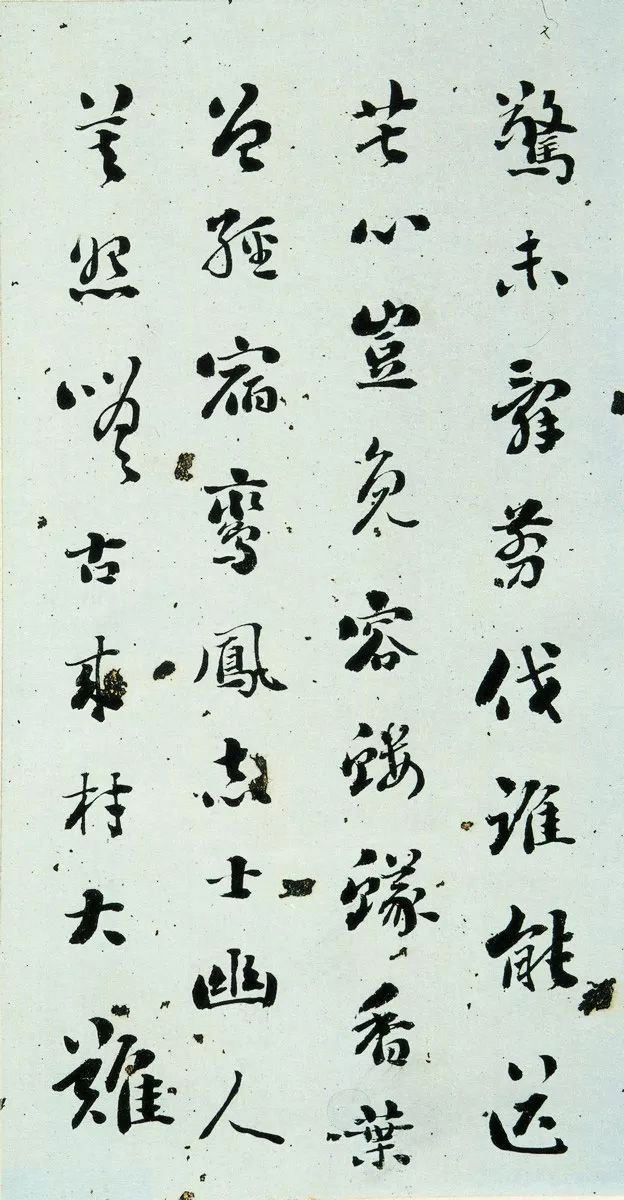 驚未辭剪伐誰能送
苦心豈免容螻蟻香葉
曾經宿鸞鳳志士幽人
莫怨嗟古來材大難